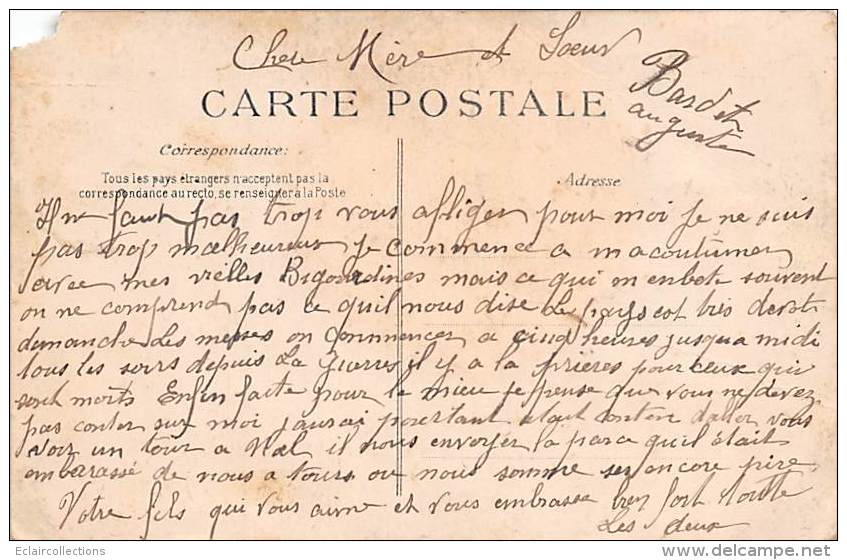 Chere Mère et Soeur
Bardet
auguste
CARTE POSTALE
Correspondance:
Tous les pays étrangers n'acceptent pas la
correspondance au recto, se renseigner à la Poste
Adresse
Il ne faut pas trop vous afliger pour moi je ne suis
pas trop malheureux je commence a macoutumer
avec mes vielles Bigourdines mais ce qui menbete souvent
on ne comprend pas ce quil nous dise le pays est très devot
dimanche les messes on commencer a cinq heures jusqua midi
tous les soirs depuis la guerre il y a la prières pour ceux qui
sont morts Enfin faite pour le mieu je pense que vous ne devez
pas conter sur moi jaurai pourtant etait contens daler vous
voir un tour a Noel il nous envoyer la parce quil était
embarrassé de nous a tours ou nous somme ses encore pire
Votre fils qui vous aime et vous embrasse bien fort toute
les deux
Eclaircollections
http://www.delcampe.net